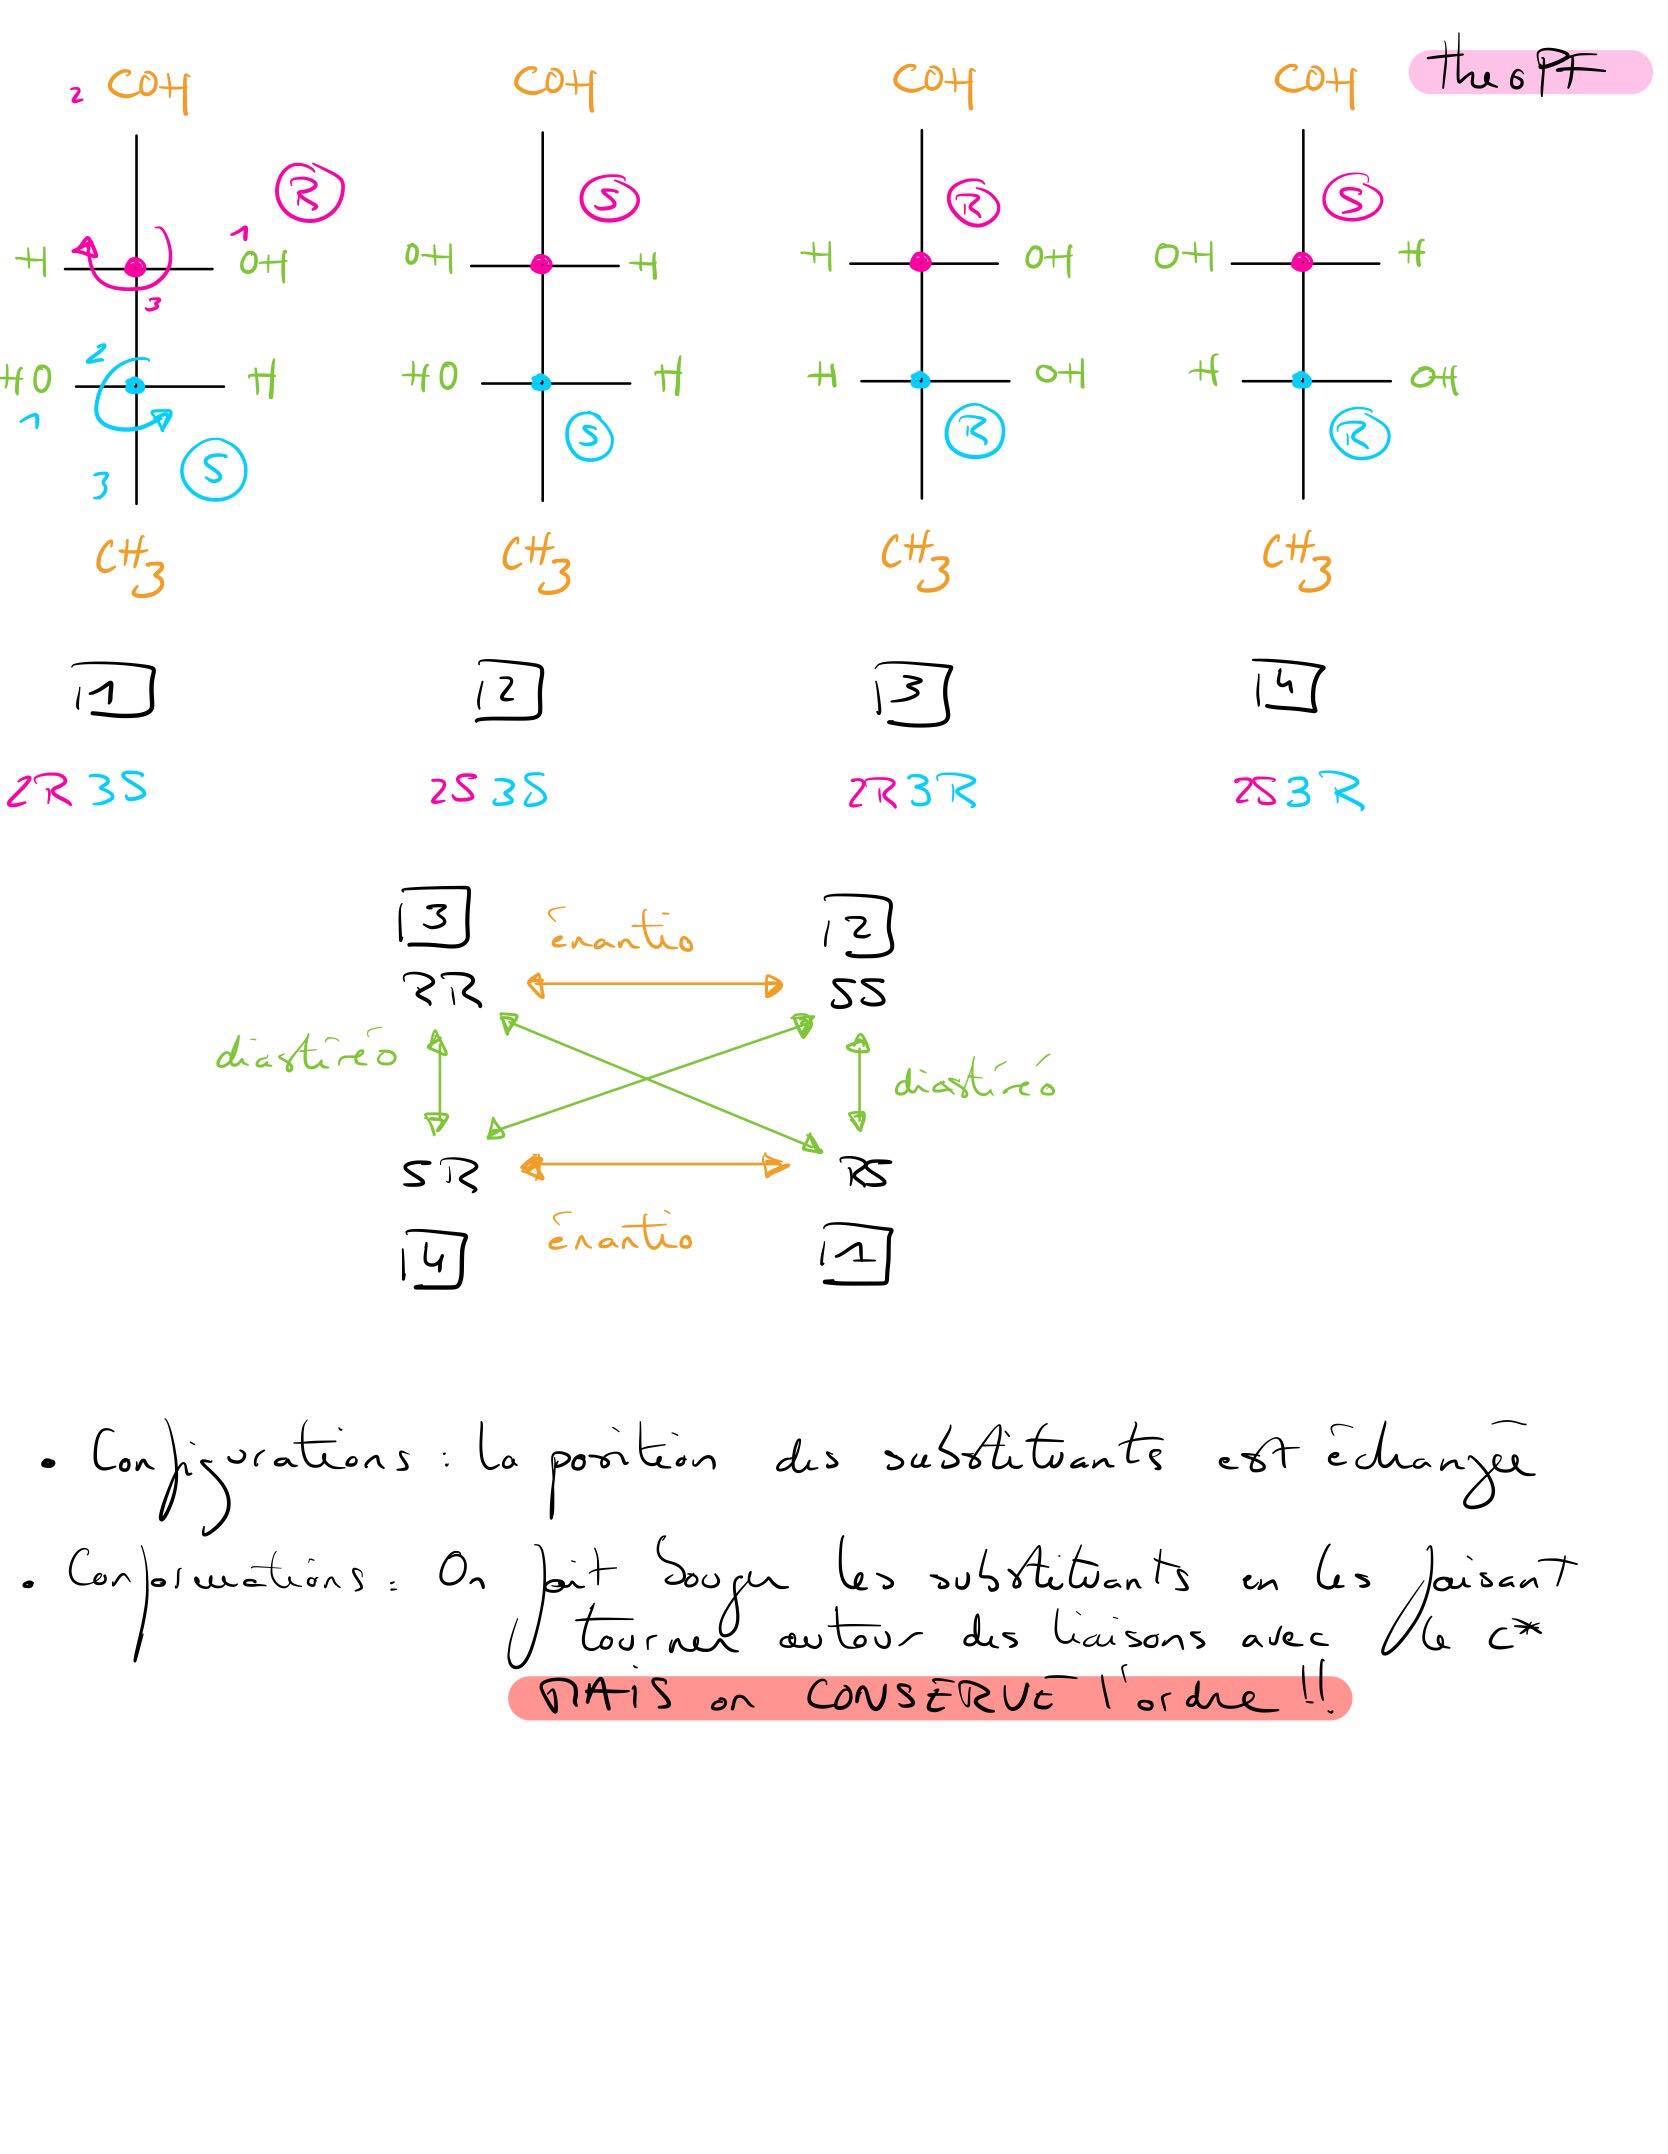 The o PF
2 COH COH COH COH
R S R S
1
H OH OH H H OH OH H
3
2
HO H HO H H OH H OH
1
S R R
3 S
CH3 CH3 CH3 CH3
1 2 3 4
2R 3S 2S 3S 2R 3R 2S 3R
3 énantio 2
RR SS
diastéréo diastéréo
SR RS
4 énantio 1
• Configurations : la position des substituants est échangée
• Conformations : On fait bouger les substituants en les faisant
tourner autour des liaisons avec le C*
MAIS on CONSERVE l'ordre !!